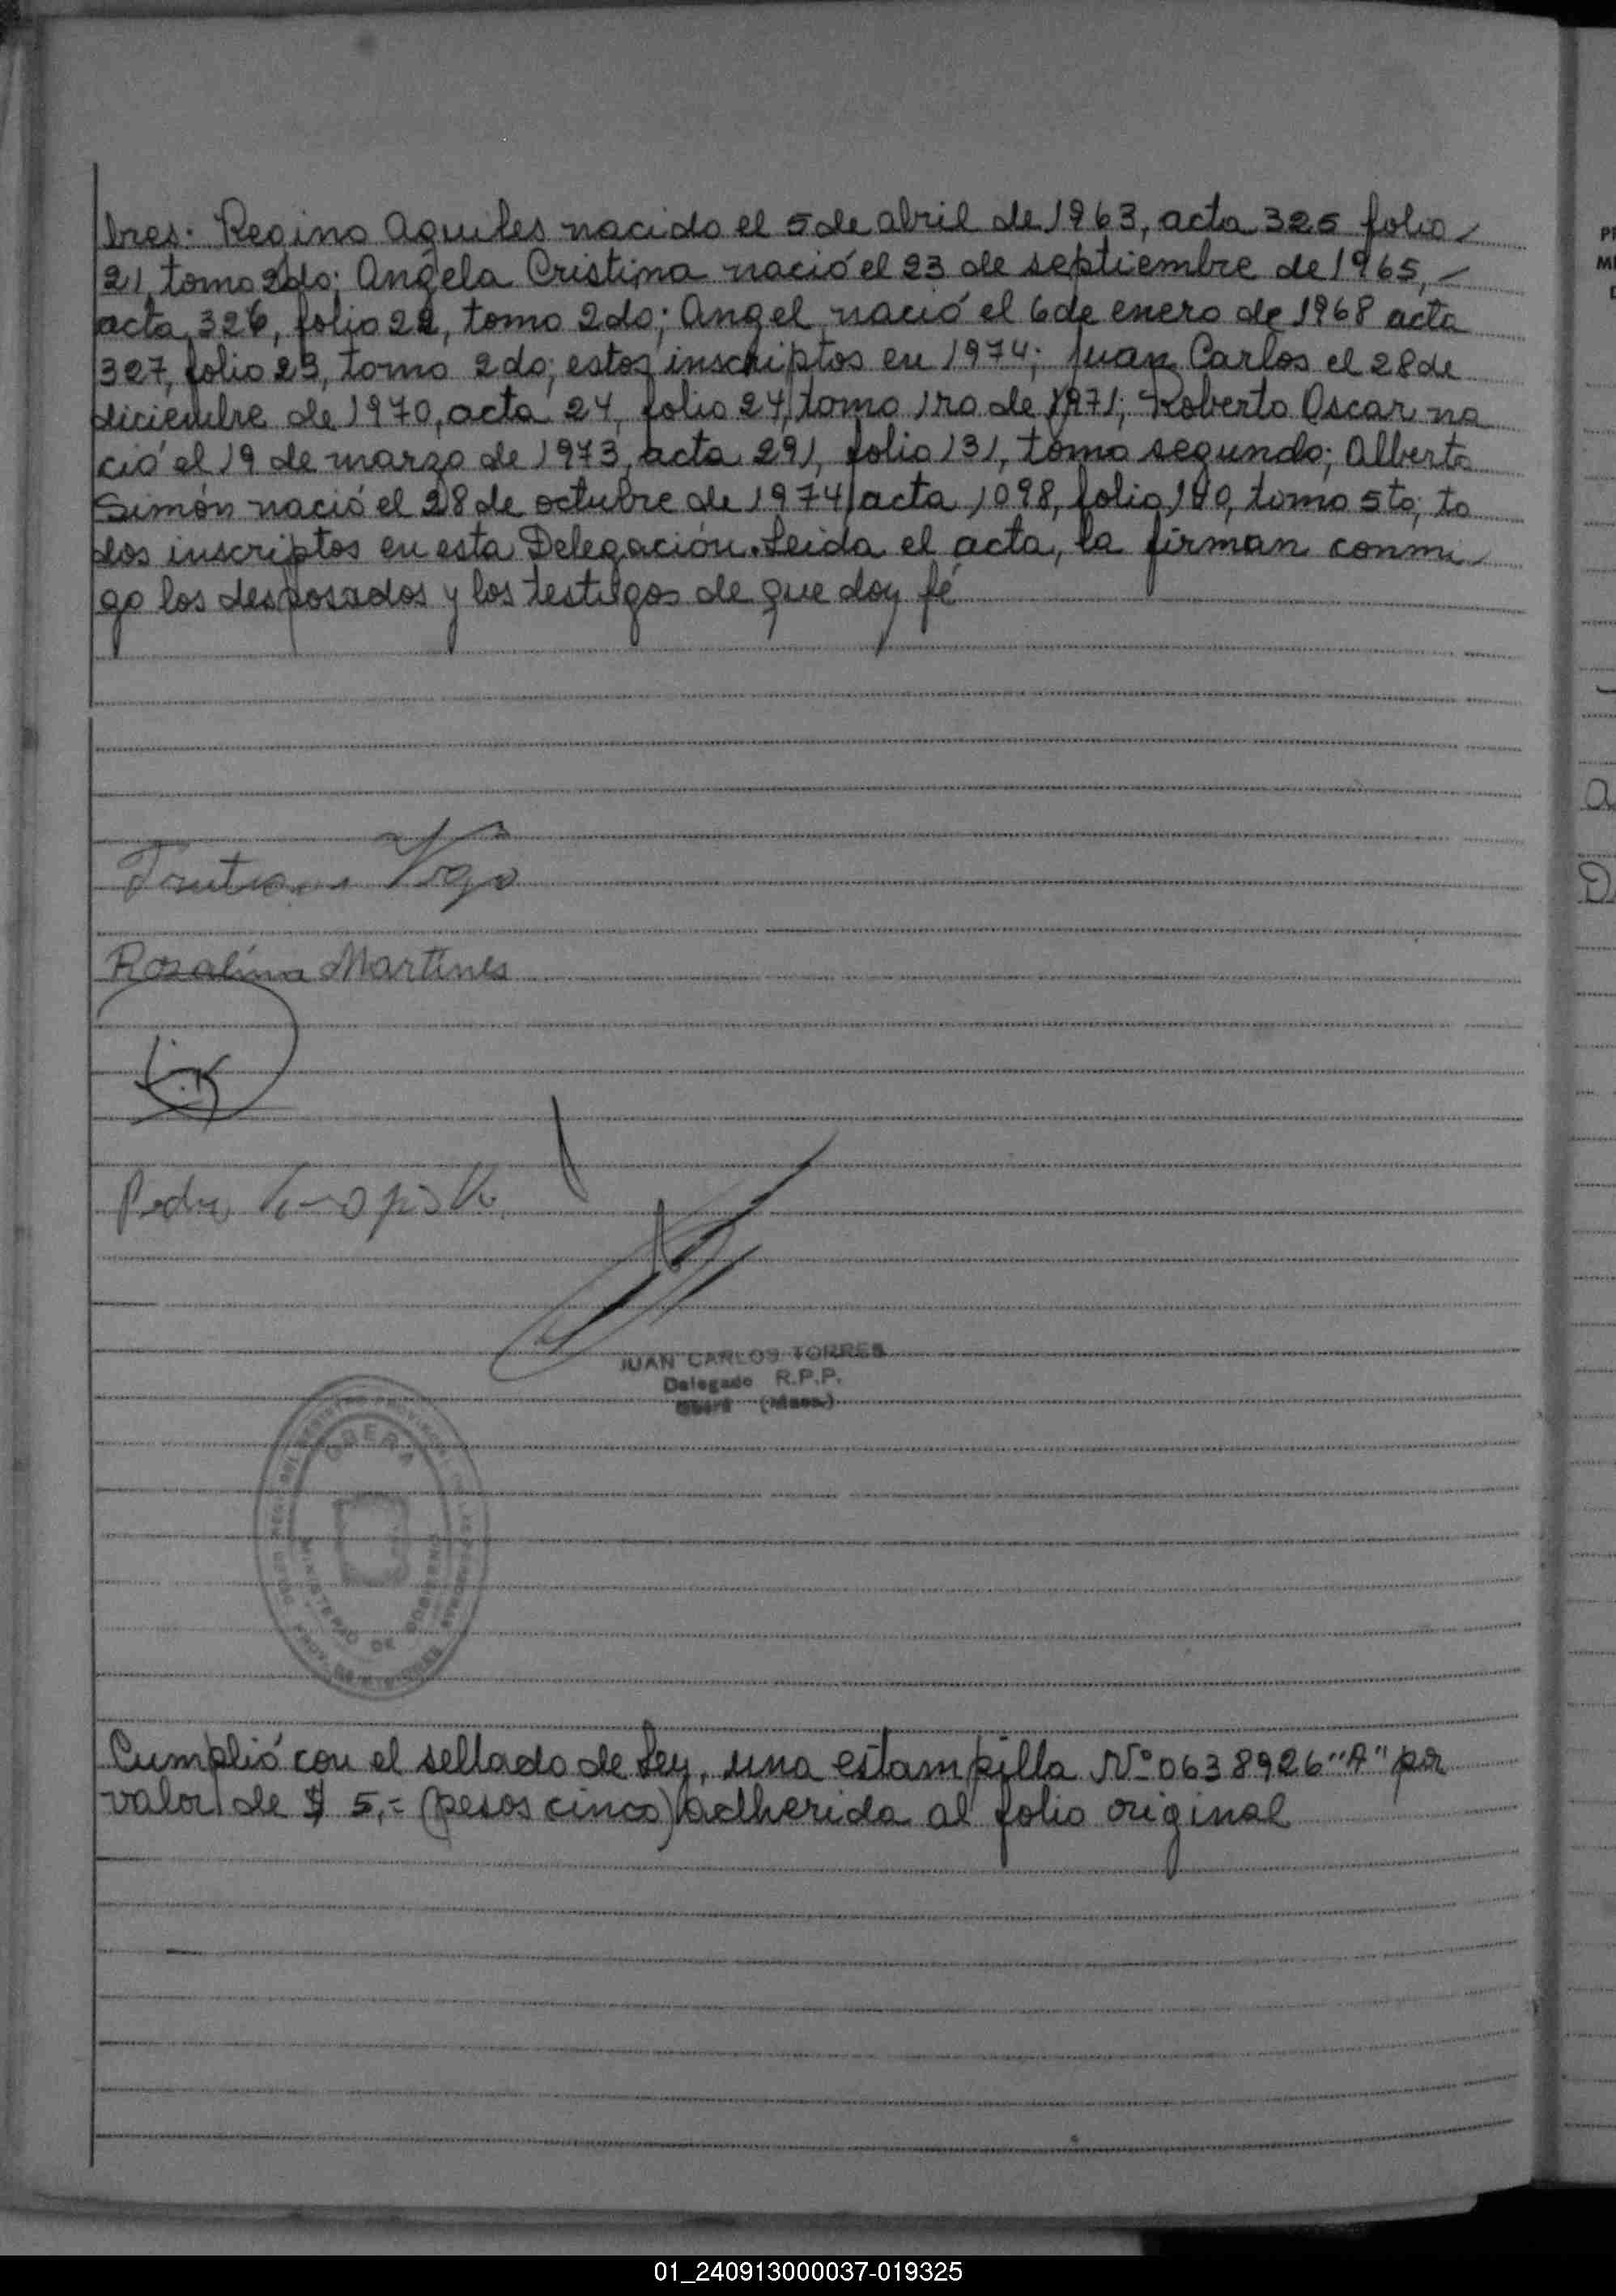 bres: Regino Aquiles nacido el 5 de abril de 1963, acta 325 folio
21, tomo 2do; Angela Cristina nació el 23 de septiembre de 1965,
acta 326, folio 22, tomo 2do; Angel nació el 6 de enero de 1968 acta
327, folio 23, tomo 2do; estos inscriptos en 1974; Juan Carlos el 28 de
diciembre de 1970, acta 24, folio 24, tomo 1ro de 1971; Roberto Oscar na
ció el 19 de marzo de 1973, acta 291, folio 131, tomo segundo; Alberto
Simón nació el 28 de octubre de 1974, acta 1098, folio tomo 5to; to
dos inscriptos en esta Delegación. Leida el acta, la firman conmi
go los desposados y los testigos de que doy fé
Rosalina Martines
Pedro
JUAN CARLOS TORRES
Delegado R.P.P.
Oberá (Mnes.)
OBERA
MINISTERIO DE GOBIERNO
PROV. DE MISIONES
Cumplió con el sellado de Ley, una estampilla Nº 0638926 "A" por
valor de $ 5,= (pesos cinco) adherida al folio original
01_240913000037-019325